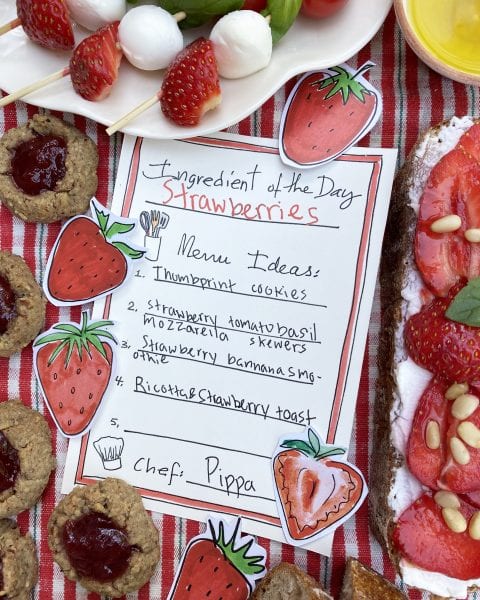 Ingredient of the Day
Strawberries
Menu Ideas:
1. Thumbprint cookies
2. strawberry tomato basil
mozzarella skewers
3. Strawberry bannana smo-
othie
4. Ricotta & Strawberry toast
5.
Chef: Pippa